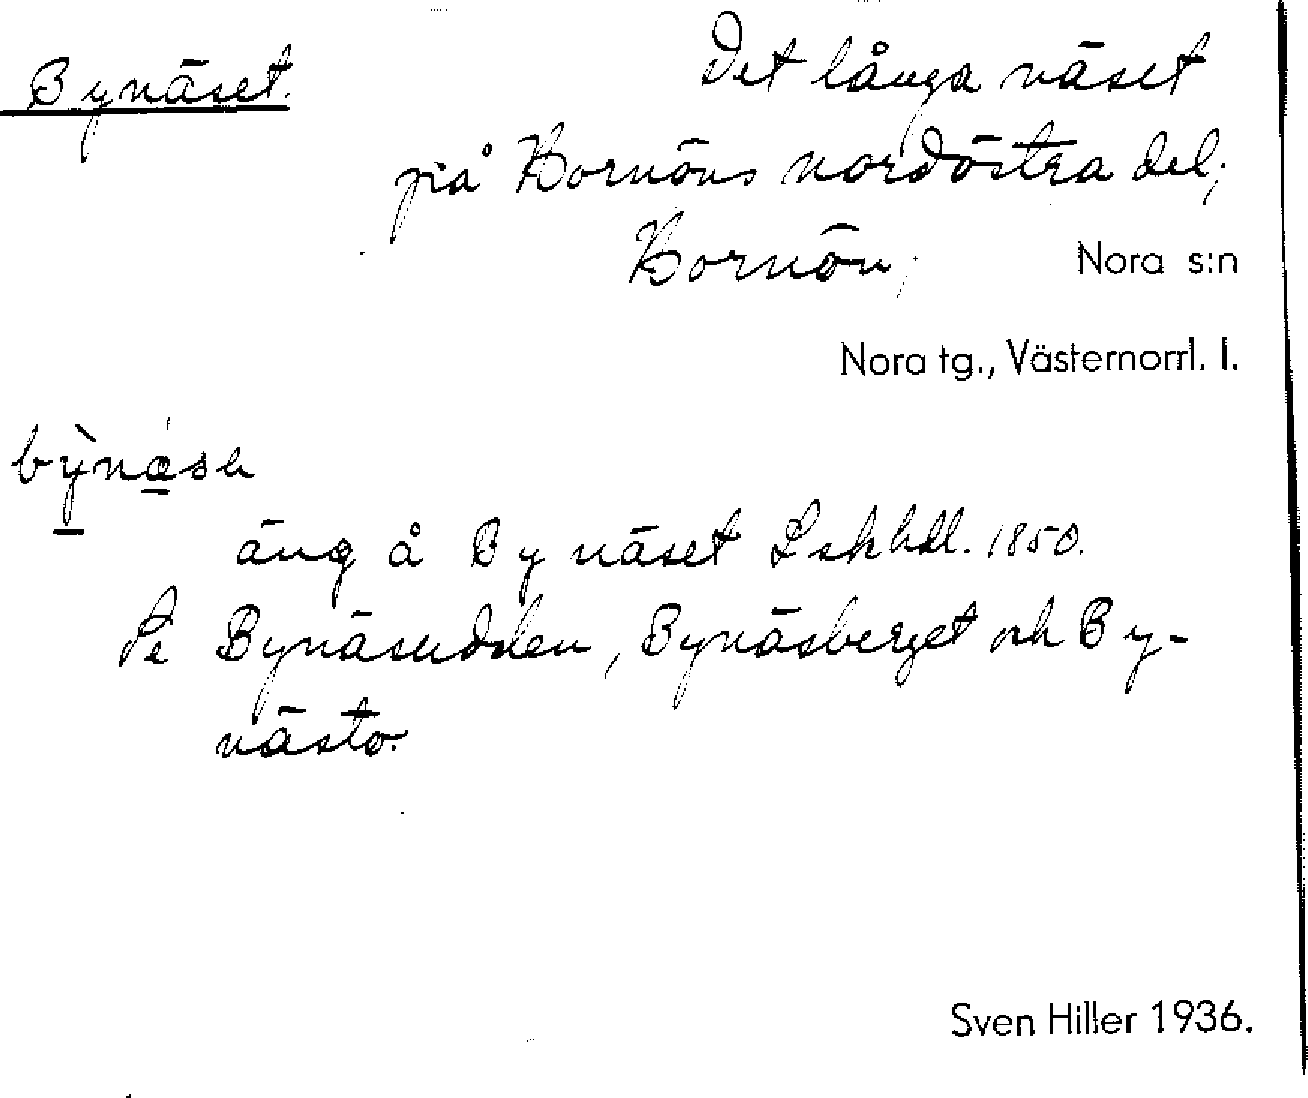 Bynäset.
Det långa näset
på Hornöns nordöstra del;
Hornön;
Nora s:n
Nora tg., Västernorrl. l.
bỳnǽsə
äng å Bynäset Lskhdl. 1850.
Se Bynäsudden, Bynäsberget och By-
nästo.
Sven Hiller 1936.